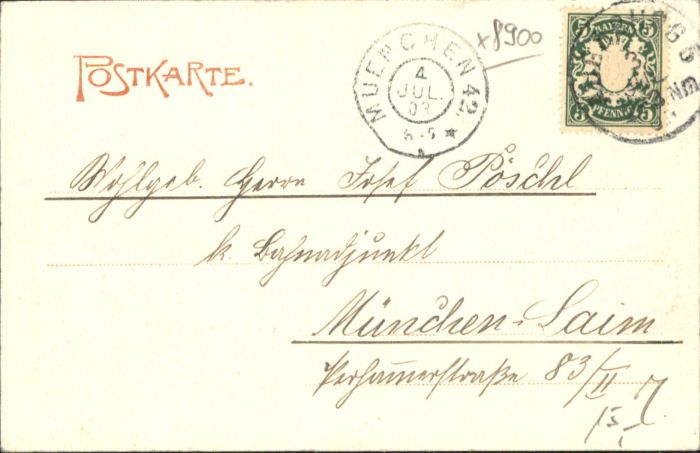 POSTKARTE.
x8900
MUENCHEN 42.
4
JUL.
03
BAYERN
5 5
PFENNIG
5 5
Wohlgeb. Herrn Josef Pöschl
k. Bahnadjunkt
München-Laim
Perhamerstraße 83/II